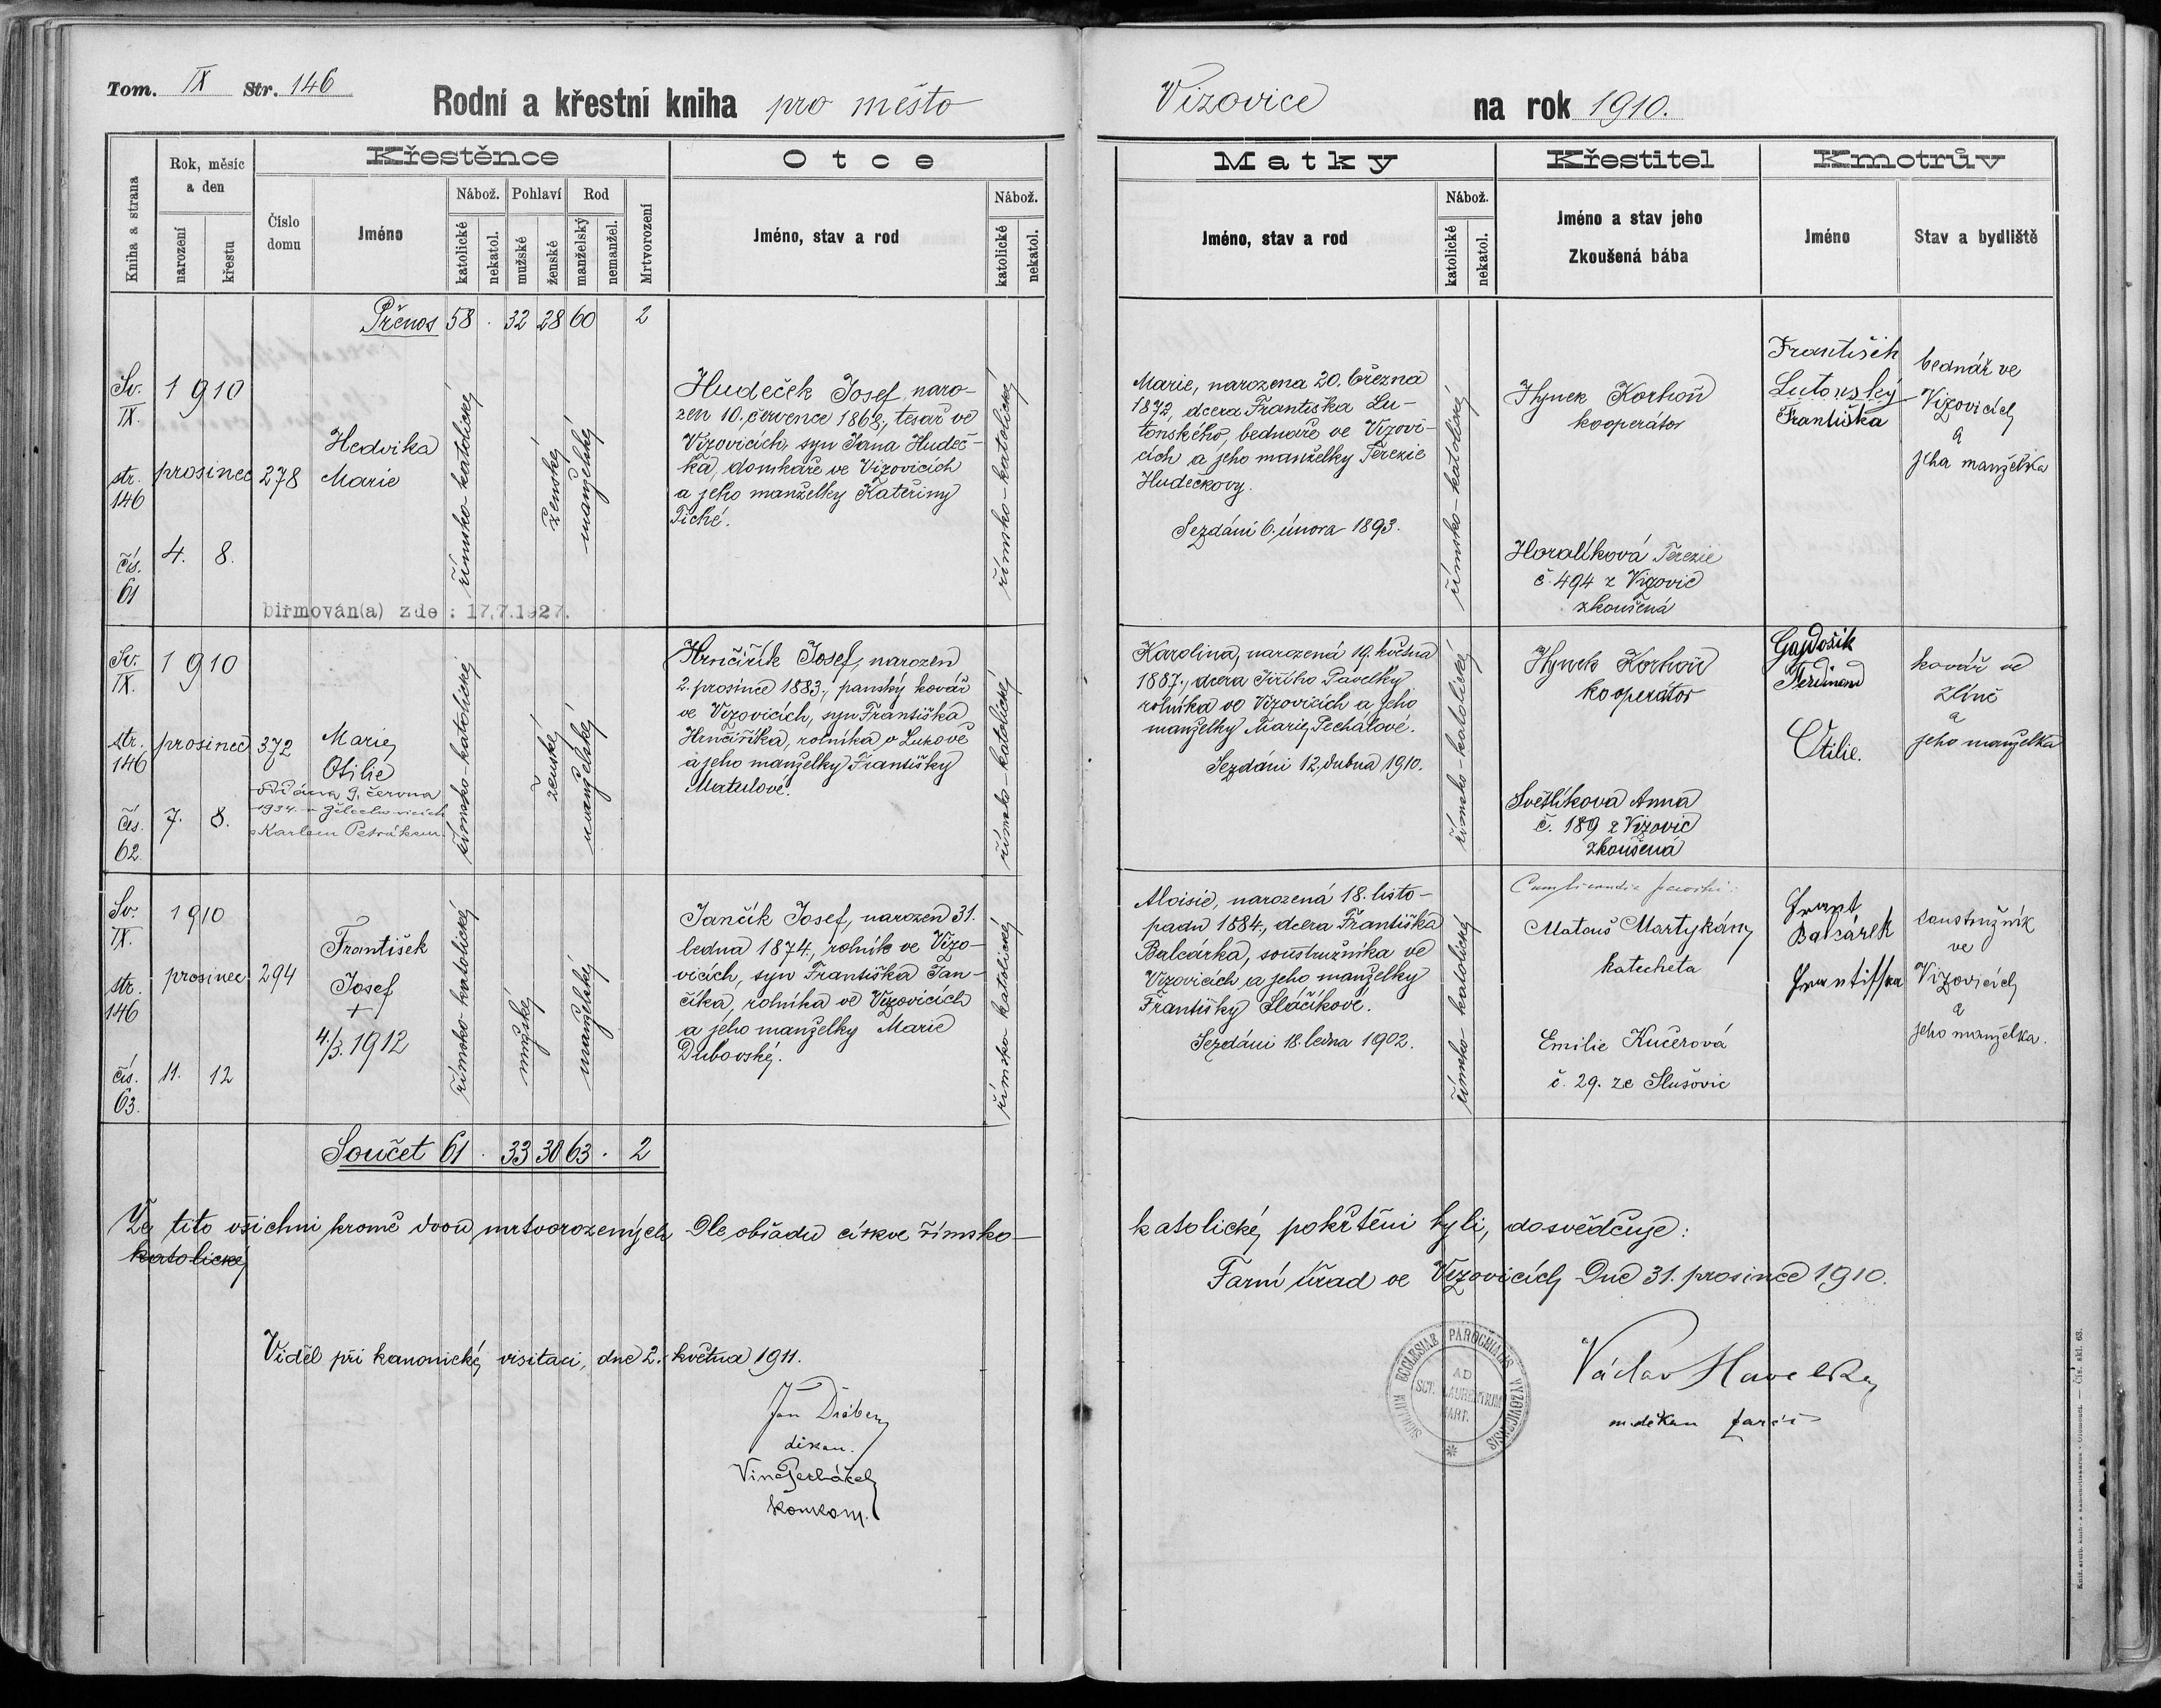 Tom. IX Str. 146
Rodní a křestní kniha pro město
Kniha a strana
Rok, měsíc
a den
narození
křestu
Křestěnce
Číslo
domu
Jméno
Nábož.
katolické
nekatol.
Pohlaví
mužské
ženské
Rod
manželský
nemanžel.
Mrtvorození
Otce
Jméno, stav a rod
Nábož.
katolické
nekatol.
Přenos 58 . 32 28 60 2
Sv.
IX.
str.
146
čís.
61
1910
prosinec
4. 8.
278
Hedvika
Marie
římsko-katolické
ženské
manželský
Hudeček Josef, naro-
zen 10. července 1868, tesař ve
Vizovicích, syn Jana Hudeč-
ka, domkáře ve Vizovicích
a jeho manželky Kateřiny
Tické.
římsko-katolické
biřmován(a) zde : 17.7.1927.
Sv.
IX.
str.
146
čís.
62.
1910
prosinec
7. 8.
372
Marie
Otilie
oddána 9. června
1934 v Želechovicích
s Karlem Petrákem.
římsko-katolické
ženské
manželský
Hrnčiřík Josef, narozen
2. prosince 1883., panský kovář
ve Vizovicích, syn Františka
Hrnčiříka, rolníka v Lukově
a jeho manželky Františky
Matulové.
římsko-katolické
Sv.
IX.
str.
146
čís.
63.
1910
prosinec
11. 12
294
František
Josef
+
4./3. 1912
římsko-katolické
mužské
manželský
Jančík Josef, narozen 31.
ledna 1874., rolník ve Vizo-
vicích, syn Františka Jan-
číka, rolníka ve Vizovicích
a jeho manželky Marie
Dubovské.
římsko katolické
Součet 61 . 33 30 63 . 2
Že tito všichni kromě dvou mrtvorozených dle obřadu církve římsko-
katolické
Viděl při kanonické visitaci, dne 2. května 1911.
děkan.
konkom.
Vizovice na rok 1910.
Matky
Jméno, stav a rod
Nábož.
katolické
nekatol.
Křestitel
Jméno a stav jeho
Zkoušená bába
Kmotrův
Jméno
Stav a bydliště
Marie, narozena 20. března
1872, dcera Františka Lu-
tonského, bednáře ve Vizovi-
cích a jeho manželky Terezie
Hudečkovy.
Sezdáni 6. února 1893.
římsko-katolické
Hynek Korhoň
kooperátor
Horalíková Terezie
č. 494 z Vizovic
zkoušená
František
Lutonský
Františka
bednář ve
Vizovicích
a
jeho manželka
Karolina, narozená 19. května
1887., dcera Jiřího Pavelky
rolníka ve Vizovicích a jeho
manželky Marie Pechálové.
Sezdáni 12. dubna 1910.
římsko-katolické
Hynek Korhoň
kooperátor
Světlíková Anna
č. 189 z Vizovic
zkoušená
Gajdošík
Ferdinand
Otilie.
kovář ve
Zlíně
a
jeho manželka
Aloisie, narozená 18. listo-
padu 1884., dcera Františka
Balcárka, soustružníka ve
Vizovicích a jeho manželky
Františky Sláčíkové.
Sezdáni 18. ledna 1902.
římsko katolické
Matouš Martykány
katecheta
Emilie Kučerová
č. 29. ze Slušovic
Balcárek
Františka
soustružník
ve
Vizovicích
a
jeho manželka.
katolické, pokřtěni byli, dosvědčuje:
Farní úřad ve Vizovicích dne 31. prosince 1910.
SIGILLUM ECCLESIAE PAROCHIALIS VYZOVICENSIS
AD
SCT. LAURENTIUM
MART.
Václav Havelka
m. děkan farář